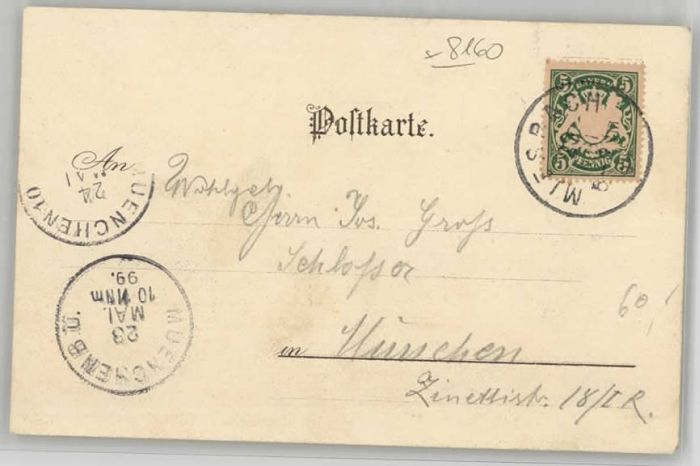 s 8160
5 BAYERN 5
5 PFENNIG 5
MIESBACH
Postkarte.
An
Wohlgeb.
Herrn Jos. Groß
Schlosser
in München
Zenettistr. 18/I R.
60,
MUENCHEN.10
24
MAI
MUENCHEN B.Ü.
23
MAI.
10 VNm
99.